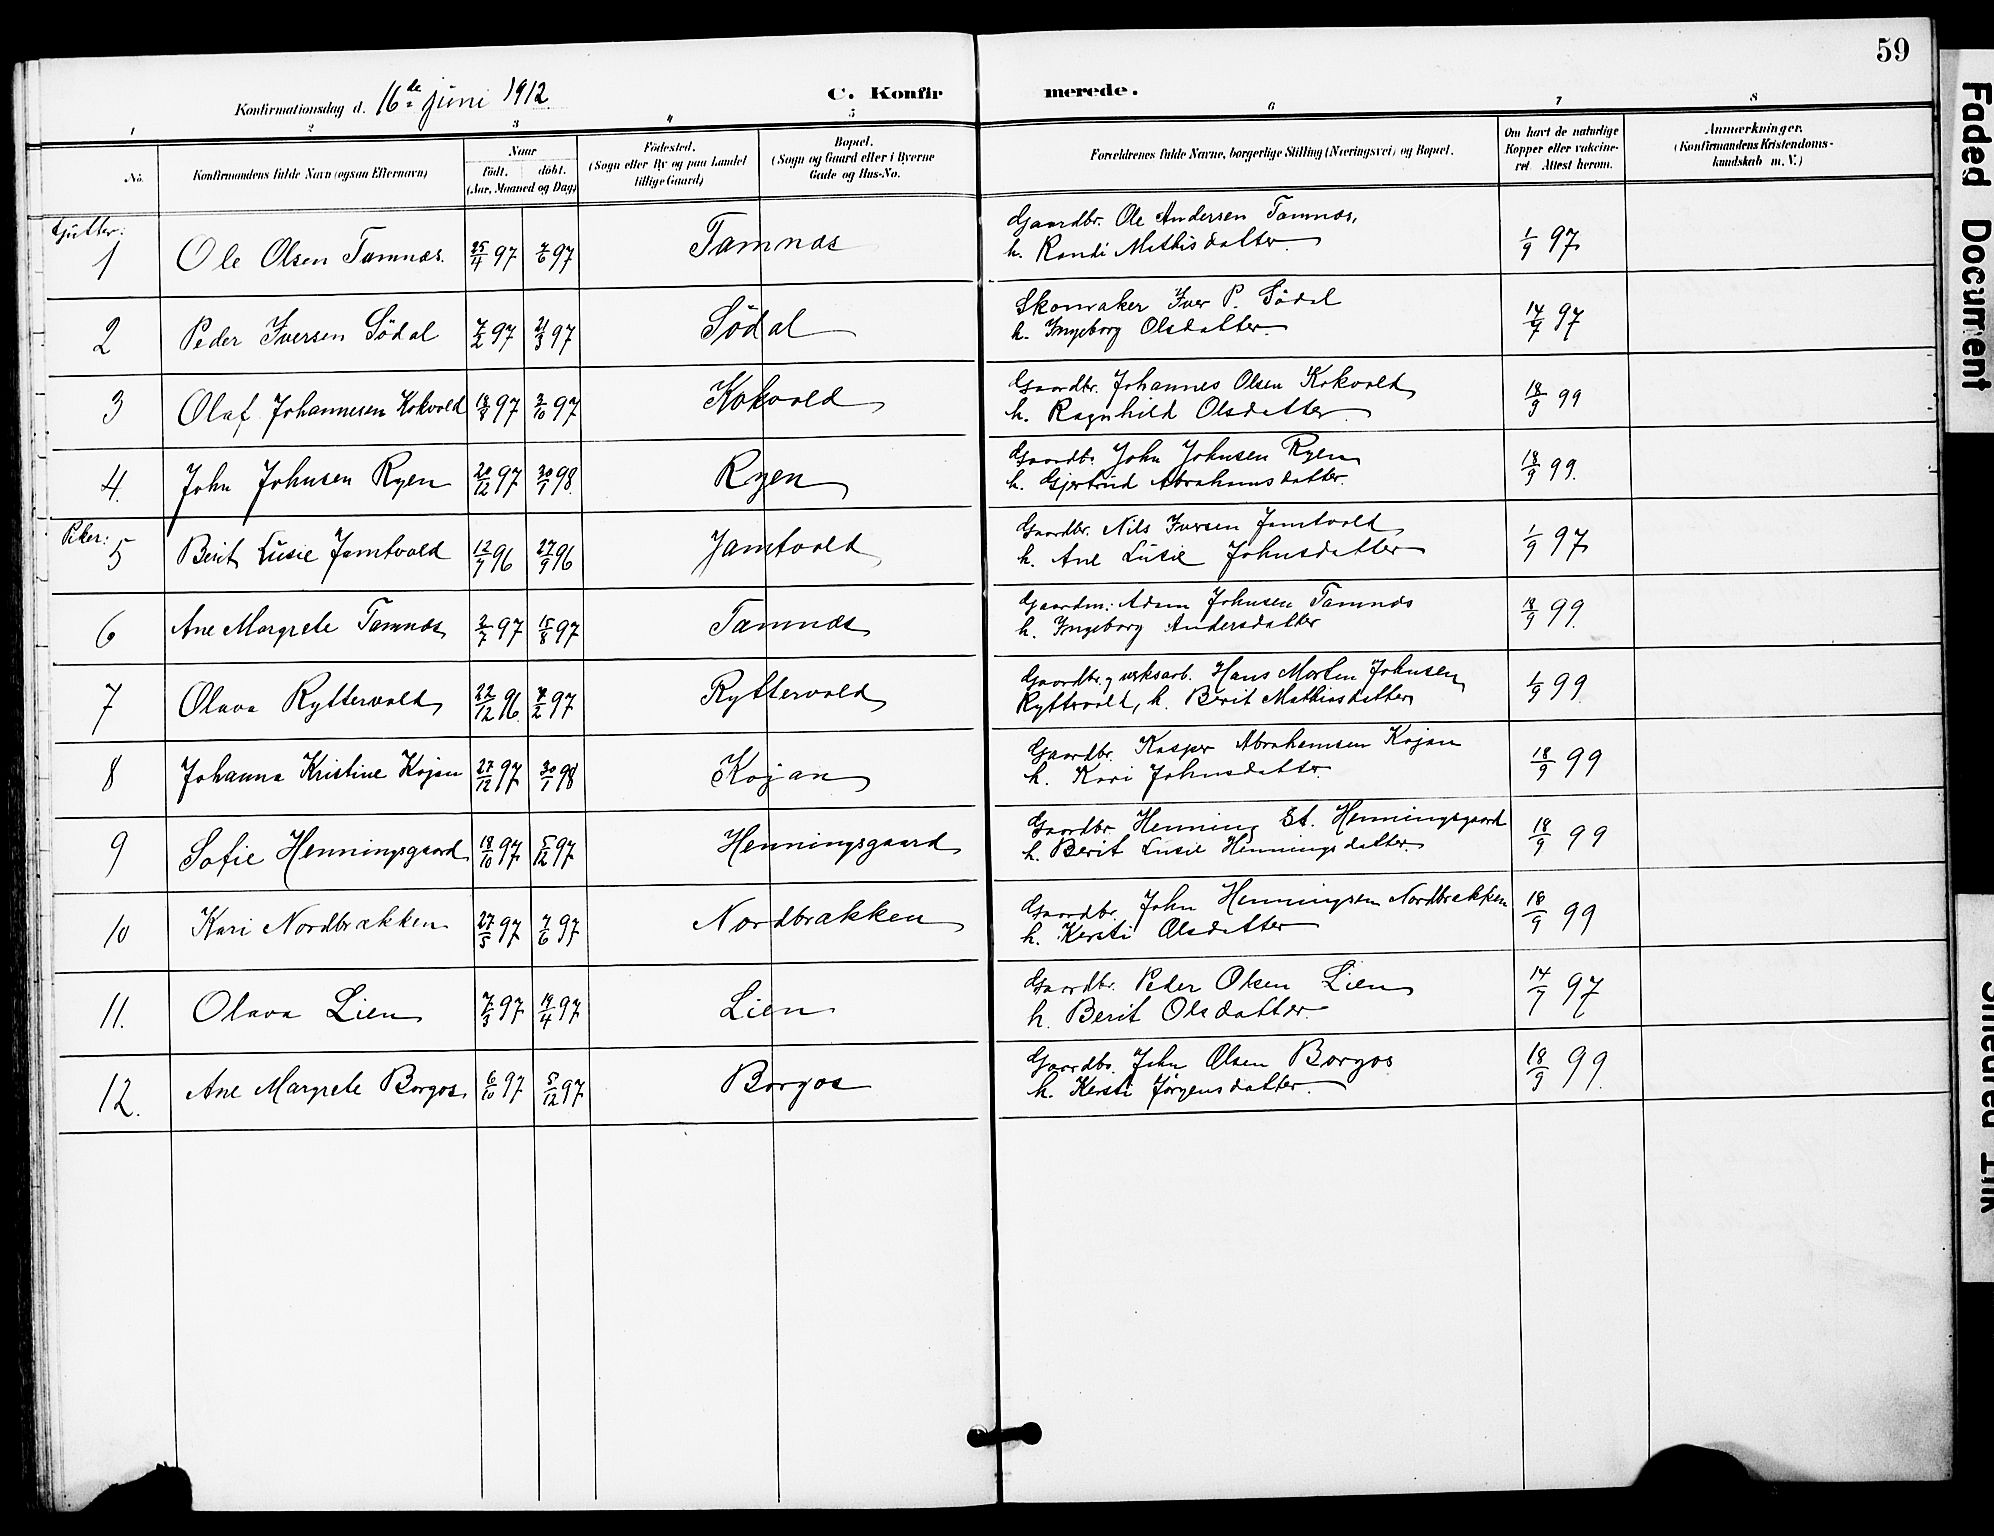 59
Konfirmationsdag d. 16de juni 1912
C. Konfirmerede.
1 2 3 4 5 6 7 8
No.
Konfirmandens fulde Navn (ogsaa Efternavn)
Naar
født. døbt.
(Aar, Maaned og Dag)
Fødested.
(Sogn eller By og paa Landet
tillige Gaard)
Bopæl.
(Sogn og Gaard eller i Byerne
Gade og Hus-No.
Forældrenes fulde Navne, borgerlige Stilling (Næringsvei) og Bopæl.
Om havt de naturlige
Kopper eller vakcine-
ret. Attest herom.
Anmærkninger.
(Konfirmandens Kristendoms-
kundskab m. V.)
Gutter:
1 Ole Olsen Tamnæs. 25/4 97 7/6 97 Tamnæs
Gaardbr. Ole Andersen Tamnæs,
h. Randi Mathisdatter 1/9 97
2 Peder Iversen Södal 7/2 97 21/3 97 Södal
Skomaker Iver P. Södal
h. Ingeborg Olsdatter 14/7 97
3 Olaf Johannesen Kokvold 18/8 97 3/10 97 Kokvold
Gaardbr. Johannes Olsen Kokvold
h. Ragnhild Olsdatter 18/9 99
4. John Johnsen Ryen 20/12 97 30/1 98. Ryen
Gaardbr. John Johnsen Ryen
h. Gjertrud Abrahamsdatter. 18/9 99.
Piker:
5 Berit Lusie Jamtvold 12/7 96 27/9 96 Jamtvold
Gaardbr. Nils Iversen Jamtvold
h. Ane Lusie Johnsdatter 1/9 97
6 Ane Margrete Tamnæs 3/7 97 15/8 97 Tamnæs
Gaardm. Adam Johnsen Tamnæs
h. Ingeborg Andersdatter 18/9 99.
7 Olava Ryttervold 22/12 96. 7/2 97 Ryttervold
Gaardbr. og verksarb. Hans Morten Johnsen
Ryttervold, h. Berit Mathiasdatter 1/9 99.
8 Johanna Kristine Kojan 27/12 97 30/1 98 Kojan
Gaardbr. Kasper Abrahamsen Kojan
h. Kari Johnsdatter. 18/9 99
9 Sofie Henningsgaard 18/10 97 5/12 97 Henningsgaard
Gaardbr. Henning St. Henningsgaard
h. Berit Lusie Henningsdatter. 18/9 99
10 Kari Nordbrækken 27/5 97 7/6 97 Nordbrækken
Gaardbr. John Henningsen Nordbrækken
h. Kersti Olsdatter 18/9 99
11. Olava Lien 7/3 97 19/4 97 Lien
Gaardbr. Peder Olsen Lien
h. Berit Olsdatter 14/7 97
12. Ane Margrete Borgos 6/10 97 5/12 97 Borgos
Gaardbr. John Olsen Borgos
h. Kersti Jørgensdatter. 18/9 99.
Faded Document
Smeared Ink